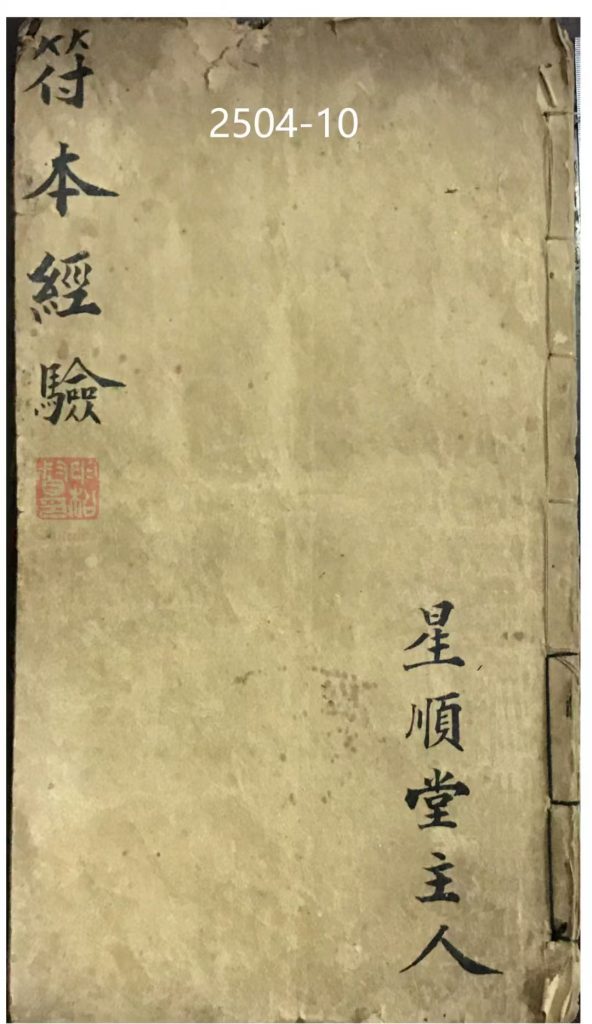 2504-10
符本經驗
星順堂主人